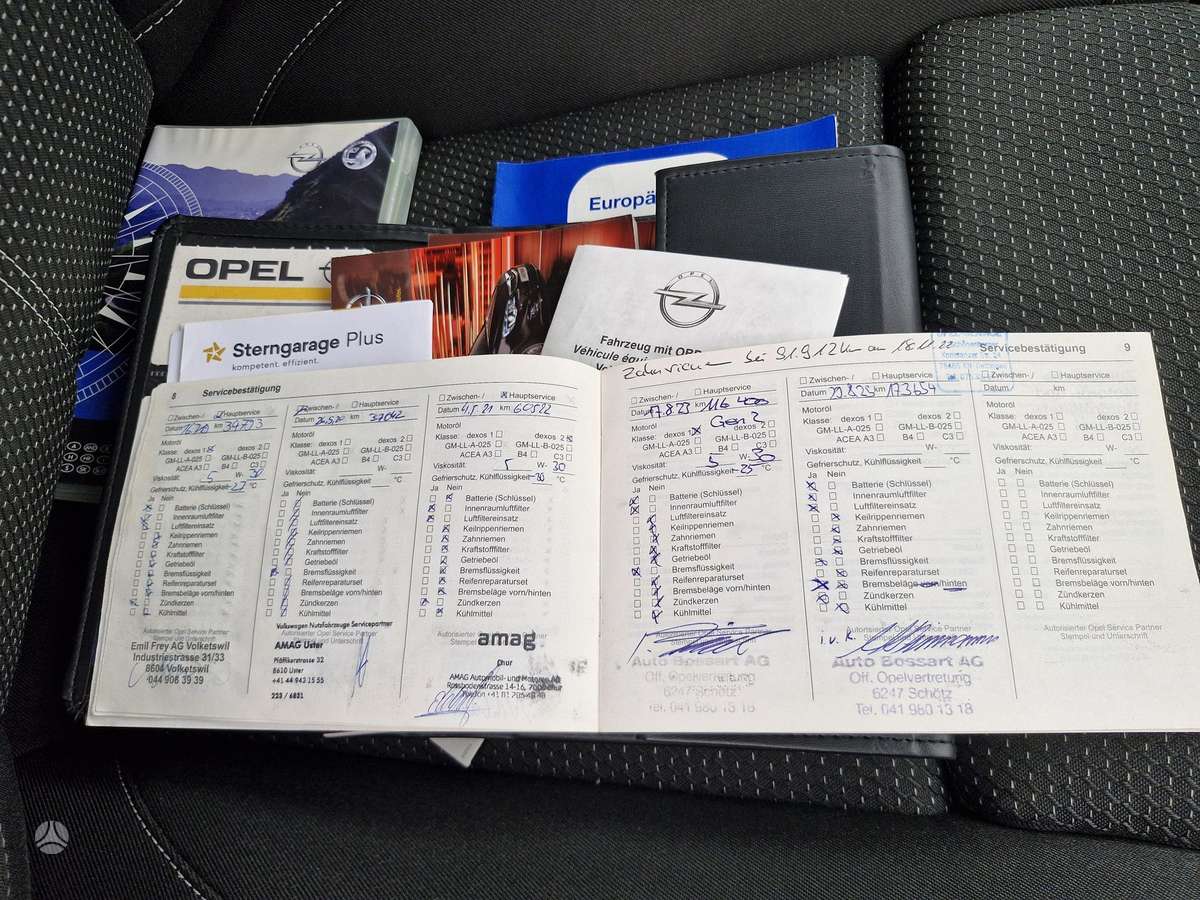 Europä
OPEL
Sterngarage Plus
kompetent. effizient.
OPEL
Fahrzeug mit
Véhicule
bei 91.912 km am 18.11.22
8 Servicebestätigung
Zwischen-/ Hauptservice
Datum km 34703
Motoröl
Klasse: dexos 1 dexos 2
GM-LL-A-025 GM-LL-B-025
ACEA A3 B4 C3
Viskosität: 5 W- 30
Gefrierschutz, Kühlflüssigkeit -27 °C
Ja Nein
Batterie (Schlüssel)
Innenraumluftfilter
Luftfiltereinsatz
Keilrippenriemen
Zahnriemen
Kraftstofffilter
Getriebeöl
Bremsflüssigkeit
Reifenreparaturset
Bremsbeläge vorn/hinten
Zündkerzen
Kühlmittel
Autorisierter Opel Service Partner
Stempel und Unterschrift
Emil Frey AG Volketswil
Industriestrasse 31/33
8604 Volketswil
044 908 39 39
Zwischen-/ Hauptservice
Datum km
Motoröl
Klasse: dexos 1 dexos 2
GM-LL-A-025 GM-LL-B-025
ACEA A3 B4 C3
Viskosität: W-
Gefrierschutz, Kühlflüssigkeit °C
Ja Nein
Batterie (Schlüssel)
Innenraumluftfilter
Luftfiltereinsatz
Keilrippenriemen
Zahnriemen
Kraftstofffilter
Getriebeöl
Bremsflüssigkeit
Reifenreparaturset
Bremsbeläge vorn/hinten
Zündkerzen
Kühlmittel
Volkswagen Nutzfahrzeuge Servicepartner
Autorisierter Opel Service Partner
Stempel und Unterschrift
AMAG Uster
Pfäffikerstrasse 32
8610 Uster
+41 44 943 15 55
223 / 6831
Zwischen-/ Hauptservice
Datum 4.5.21 km 60522
Motoröl
Klasse: dexos 1 dexos 2
GM-LL-A-025 GM-LL-B-025
ACEA A3 B4 C3
Viskosität: 5 W- 30
Gefrierschutz, Kühlflüssigkeit -30 °C
Ja Nein
Batterie (Schlüssel)
Innenraumluftfilter
Luftfiltereinsatz
Keilrippenriemen
Zahnriemen
Kraftstofffilter
Getriebeöl
Bremsflüssigkeit
Reifenreparaturset
Bremsbeläge vorn/hinten
Zündkerzen
Kühlmittel
Autorisierter
Stempel
amag
Chur
AMAG Automobil- und Motoren AG
Rossbodenstrasse 14-16, 7000 Chur
Servicebestätigung 9
Zwischen-/ Hauptservice
Datum 17.8.23 km 116 400
Motoröl Gen 2
Klasse: dexos 1 dexos 2
GM-LL-A-025 GM-LL-B-025
ACEA A3 B4 C3
Viskosität: 5 W- 30
Gefrierschutz, Kühlflüssigkeit -25 °C
Ja Nein
Batterie (Schlüssel)
Innenraumluftfilter
Luftfiltereinsatz
Keilrippenriemen
Zahnriemen
Kraftstofffilter
Getriebeöl
Bremsflüssigkeit
Reifenreparaturset
Bremsbeläge vorn/hinten
Zündkerzen
Kühlmittel
Autorisierter Opel Service Partner
Stempel und Unterschrift
Auto Bossart AG
Off. Opelvertretung
6247 Schötz
Tel. 041 980 13 18
Zwischen-/ Hauptservice
Datum km 173654
Motoröl
Klasse: dexos 1 dexos 2
GM-LL-A-025 GM-LL-B-025
ACEA A3 B4 C3
Viskosität: W-
Gefrierschutz, Kühlflüssigkeit °C
Ja Nein
Batterie (Schlüssel)
Innenraumluftfilter
Luftfiltereinsatz
Keilrippenriemen
Zahnriemen
Kraftstofffilter
Getriebeöl
Bremsflüssigkeit
Reifenreparaturset
Bremsbeläge vorn/hinten
Zündkerzen
Kühlmittel
Autorisierter Opel Service Partner
Stempel und Unterschrift
i.v.K.
Auto Bossart AG
Off. Opelvertretung
6247 Schötz
Tel. 041 980 13 18
Zwischen-/ Hauptservice
Datum km
Motoröl
Klasse: dexos 1 dexos 2
GM-LL-A-025 GM-LL-B-025
ACEA A3 B4 C3
Viskosität: W-
Gefrierschutz, Kühlflüssigkeit °C
Ja Nein
Batterie (Schlüssel)
Innenraumluftfilter
Luftfiltereinsatz
Keilrippenriemen
Zahnriemen
Kraftstofffilter
Getriebeöl
Bremsflüssigkeit
Reifenreparaturset
Bremsbeläge vorn/hinten
Zündkerzen
Kühlmittel
Autorisierter Opel Service Partner
Stempel und Unterschrift